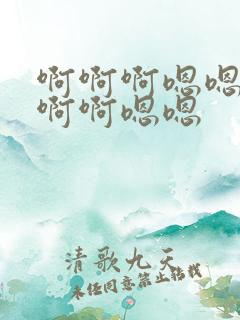 啊啊啊嗯嗯
啊啊嗯嗯
清歌九天
未经同意禁止转载